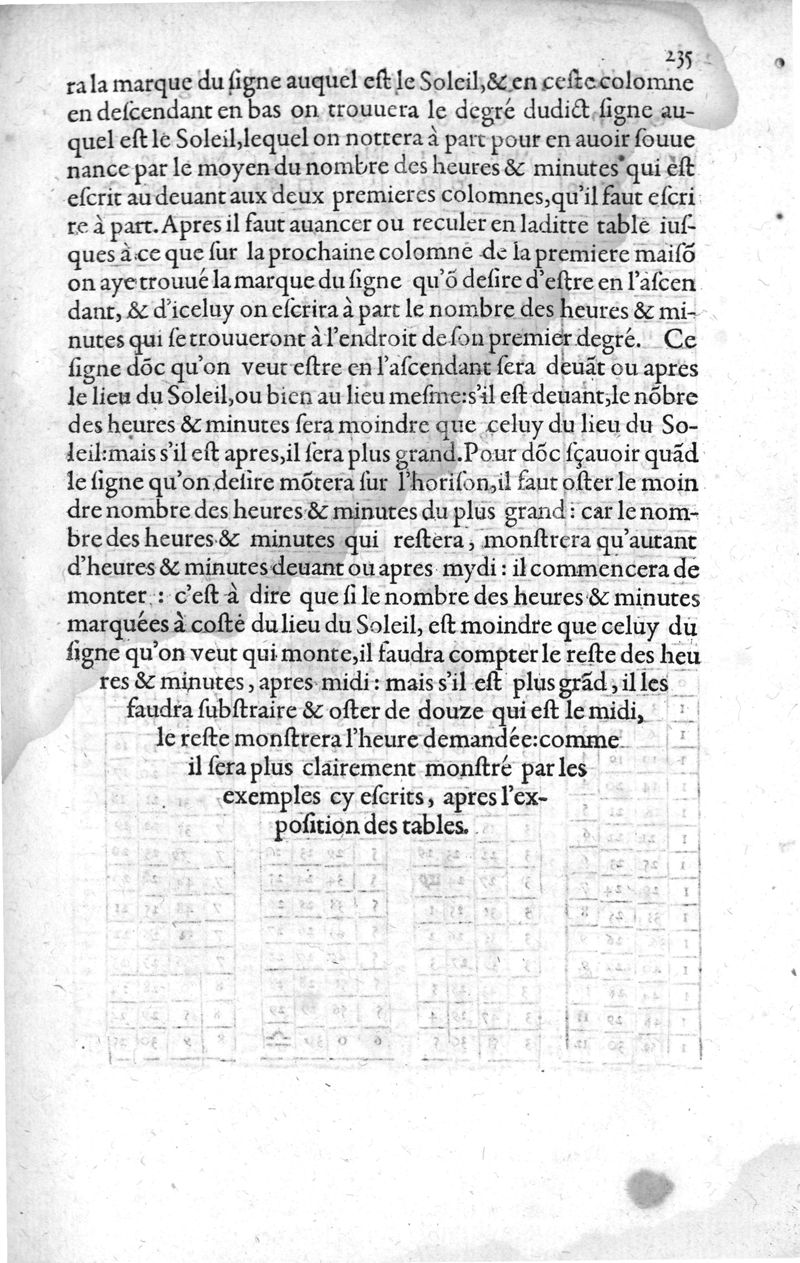 235
ra la marque du ſigne auquel eſt le Soleil,& en ceſte colomne
en deſcendant en bas on trouuera le degré dudict ſigne au-
quel eſt le Soleil,lequel on nottera à part pour en auoir ſouue
nance par le moyen du nombre des heures & minutes qui eſt
eſcrit au deuant aux deux premieres colomnes,qu'il faut eſcri
re à part. Apres il faut auancer ou reculer en laditte table iuſ-
ques à ce que ſur la prochaine colomne de la premiere maiſõ
on aye trouué la marque du ſigne qu'õ deſire d'eſtre en l'aſcen
dant, & d'iceluy on eſcrira à part le nombre des heures & mi-
nutes qui ſe trouueront à l'endroit de ſon premier degré. Ce
ſigne dõc qu'on veut eſtre en l'aſcendant ſera deuãt ou apres
le lieu du Soleil,ou bien au lieu meſme:s'il eſt deuant,le nõbre
des heures & minutes ſera moindre que celuy du lieu du So-
leil:mais s'il eſt apres,il ſera plus grand.Pour dõc ſçauoir quãd
le ſigne qu'on deſire mõtera ſur l'horiſon,il faut oſter le moin
dre nombre des heures & minutes du plus grand : car le nom-
bre des heures & minutes qui reſtera , monſtrera qu'autant
d'heures & minutes deuant ou apres mydi : il commencera de
monter : c'eſt à dire que ſi le nombre des heures & minutes
marquées à coſté du lieu du Soleil, eſt moindre que celuy du
ſigne qu'on veut qui monte,il faudra compter le reſte des heu
res & minutes , apres midi : mais s'il eſt plus grãd , il les
faudra ſubſtraire & oſter de douze qui eſt le midi,
le reſte monſtrera l'heure demandée:comme
il ſera plus clairement monſtré par les
exemples cy eſcrits, apres l'ex-
poſition des tables.